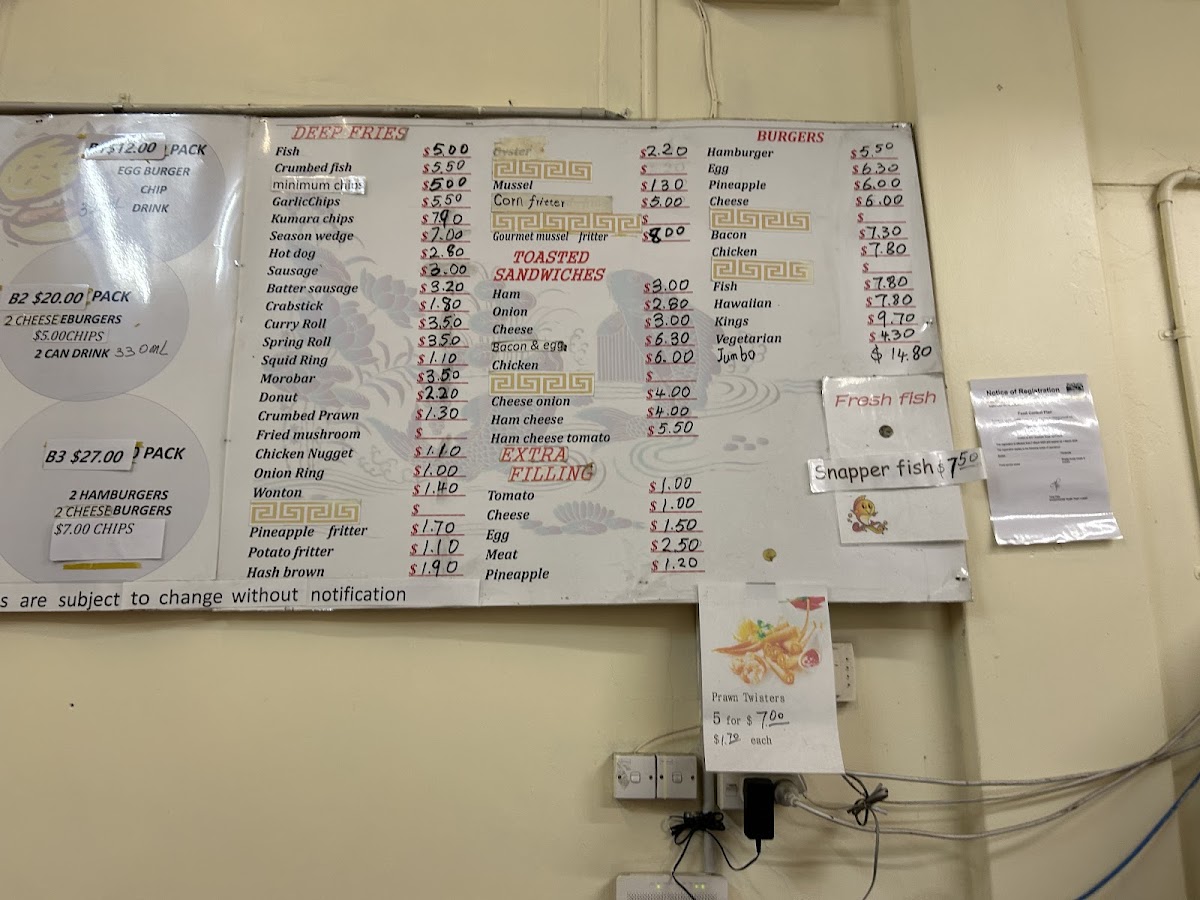 $12.00 PACK
EGG BURGER
CHIP
DRINK
B2 $20.00 PACK
2 CHEESEBURGERS
$5.00CHIPS
2 CAN DRINK 330mL
B3 $27.00 PACK
2 HAMBURGERS
2 CHEESEBURGERS
$7.00 CHIPS
s are subject to change without notification
DEEP FRIES
Fish $5.00
Crumbed fish $5.50
minimum chips $5.00
GarlicChips $5.50
Kumara chips $7.90
Season wedge $7.00
Hot dog $2.80
Sausage $3.00
Batter sausage $3.20
Crabstick $1.80
Curry Roll $3.50
Spring Roll $3.50
Squid Ring $1.10
Morobar $3.50
Donut $2.20
Crumbed Prawn $1.30
Fried mushroom $
Chicken Nugget $1.10
Onion Ring $1.00
Wonton $1.40
$
Pineapple fritter $1.70
Potato fritter $1.10
Hash brown $1.90
Oyster $2.20
Mussel $1.30
Corn fritter $5.00
Gourmet mussel fritter $8.00
TOASTED
SANDWICHES
Ham $3.00
Onion $2.80
Cheese $3.00
Bacon & egg $6.30
Chicken $6.00
$
Cheese onion $4.00
Ham cheese $4.00
Ham cheese tomato $5.50
EXTRA
FILLING
Tomato $1.00
Cheese $1.00
Egg $1.50
Meat $2.50
Pineapple $1.20
BURGERS
Hamburger $5.50
Egg $6.30
Pineapple $6.00
Cheese $6.00
$
Bacon $7.30
Chicken $7.80
$
Fish $7.80
Hawaiian $7.80
Kings $9.70
Vegetarian $4.30
Jumbo $14.80
Fresh fish
Snapper fish $7.50
Notice of Registration
Prawn Twisters
5 for $7.00
$1.70 each